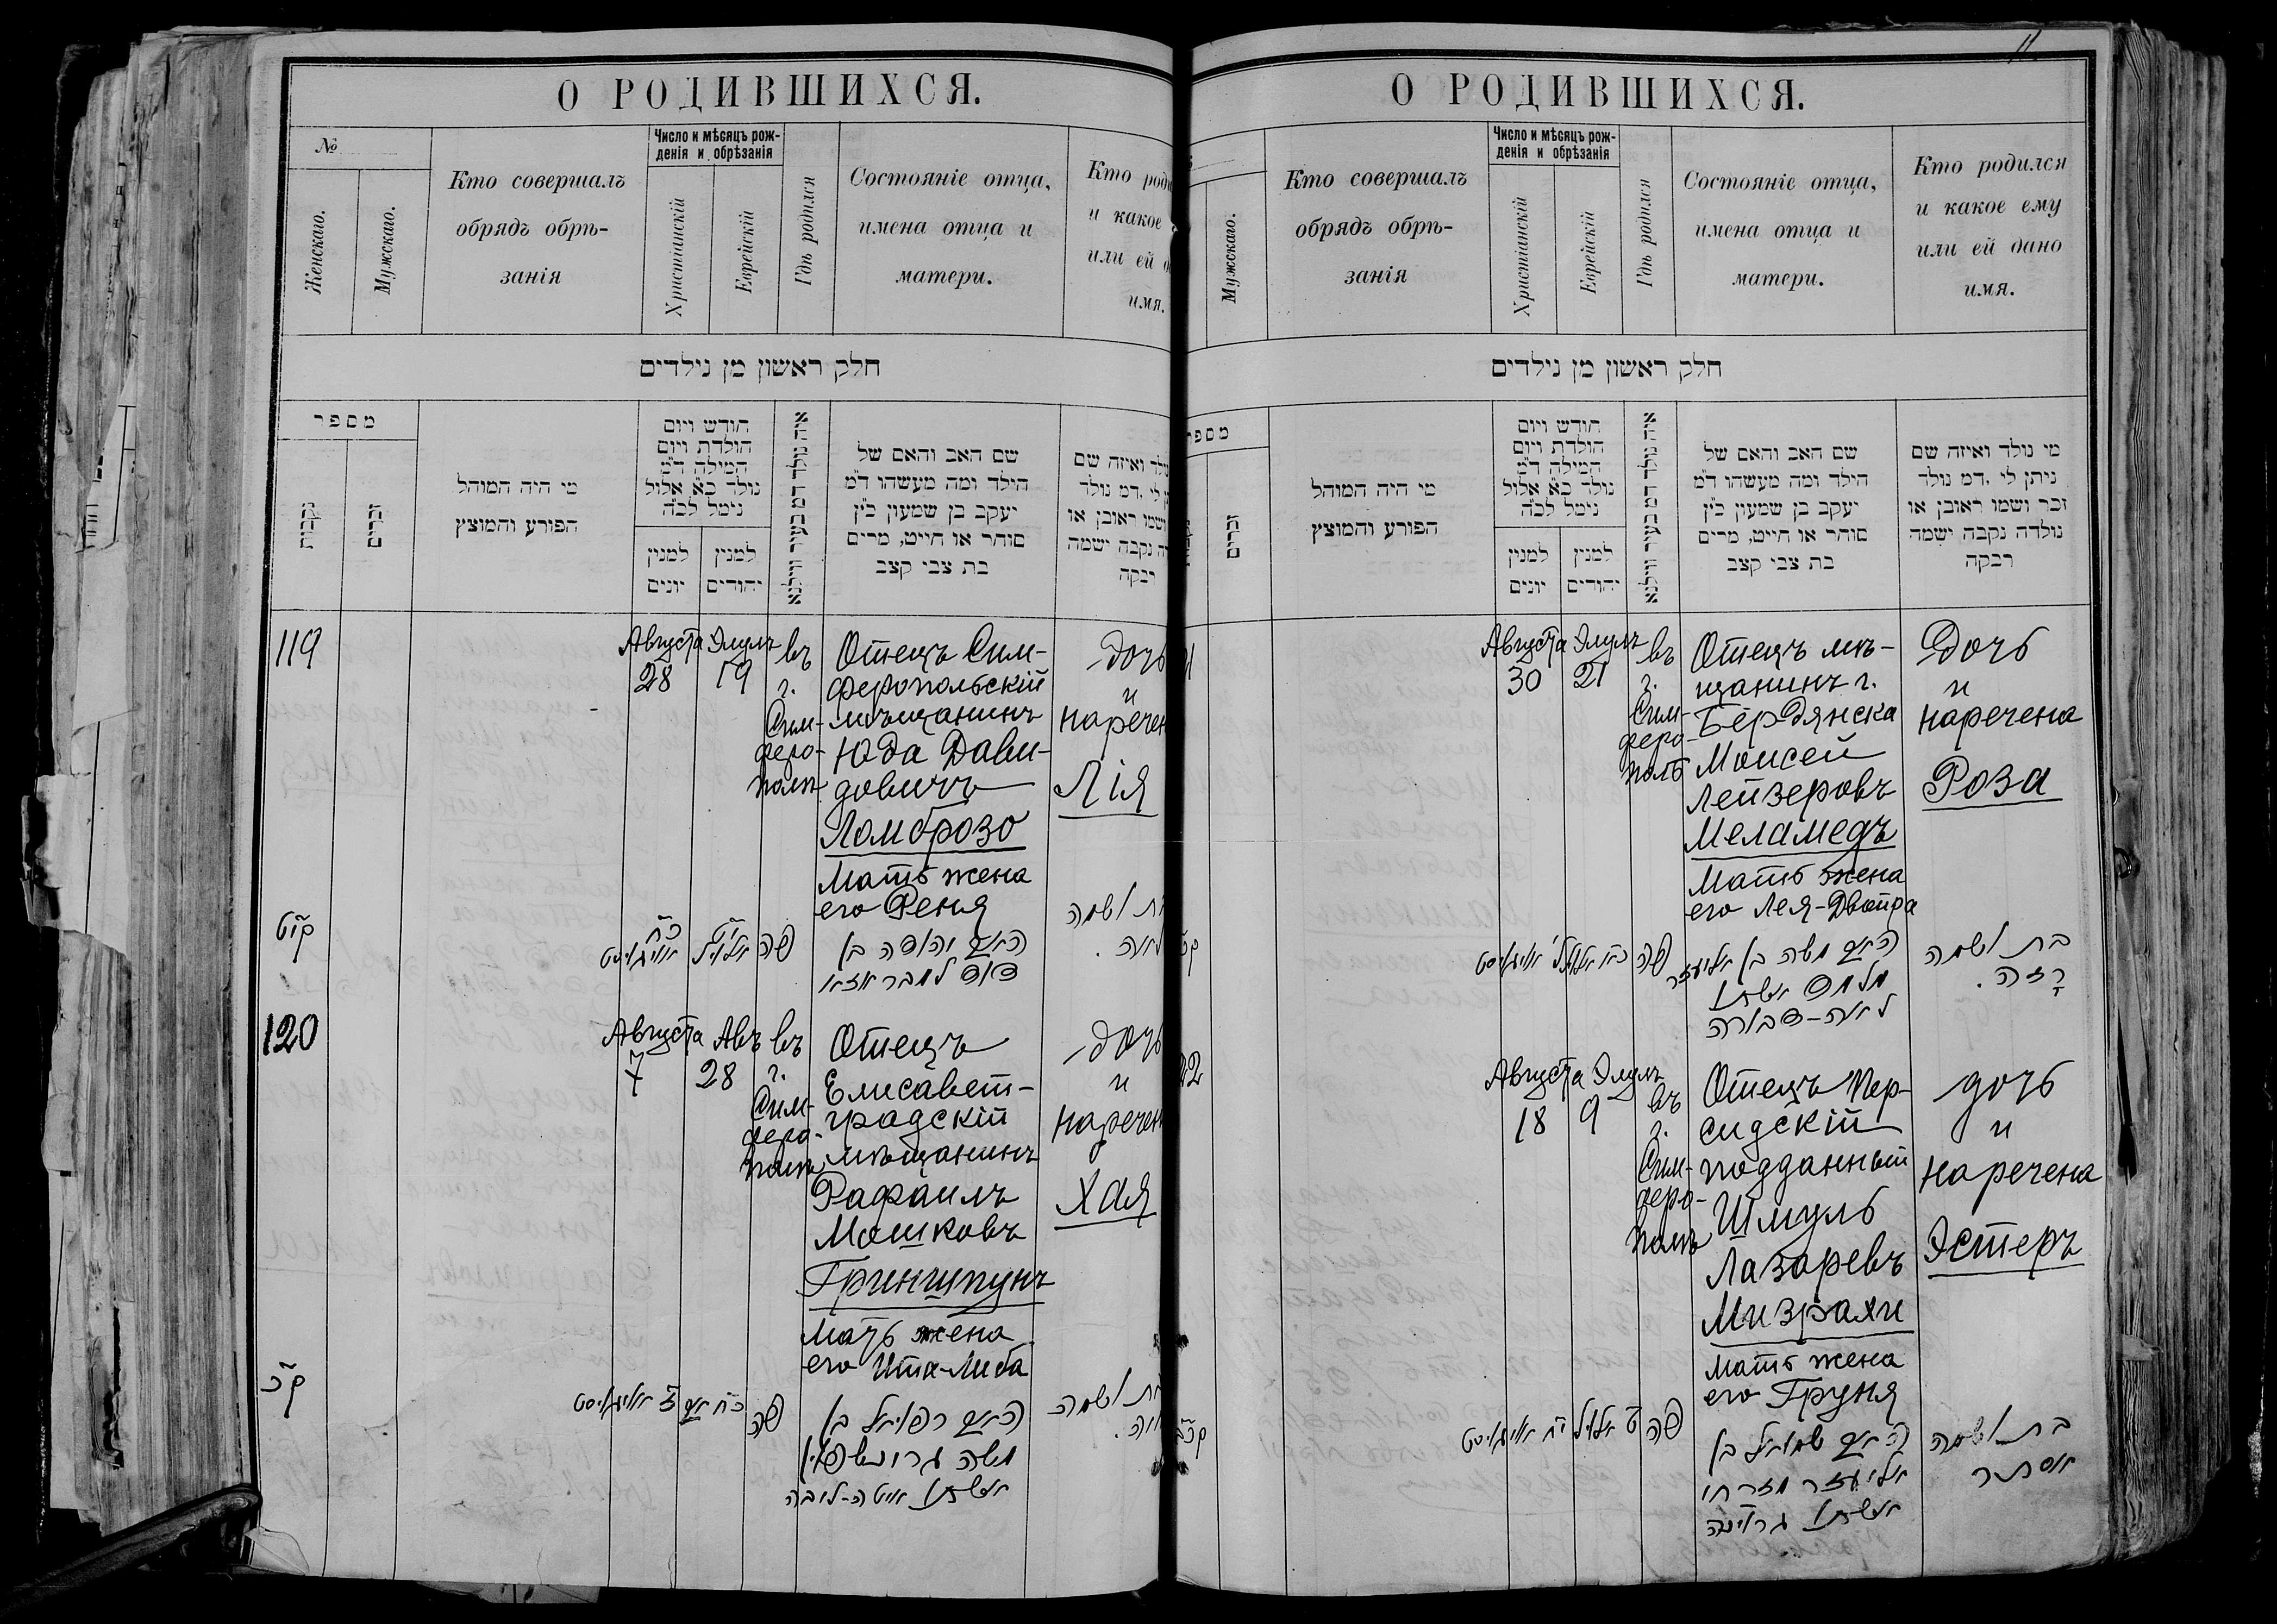 О РОДИВШИХСЯ.
№
Женскаго.
Мужскаго.
Кто совершалъ
обрядъ обрѣ-
занія
Число и мѣсяцъ рож-
денія и обрѣзанія
Христіанскій
Еврейскій
Гдѣ родился
Состояніе отца,
имена отца и
матери.
Кто
и какое
или ей
имя.
חלק ראשון מן נילדים
מספר
נקבות
זכרים
מי היה המוהל
הפורע והמוצץ
חודש ויום
הולדת ויום
המילה ד"מ
נולד כ"א אלול
נימל לכ"ה
למנין
יונים
למנין
יהודים
איה נולד דמ בעיר ווילנא
שם האב והאם של
הילד ומה מעשהו ד"מ
יעקב בן שמעון כ"ץ
סוחר או חייט, מרים
בת צבי קצב
ואיזה שם
לי .דמ נולד
ושמו ראובן או
נקבה ישמה
רבקה
119
Августа
28
Элулъ
19
въ
г.
Сим-
феро-
полѣ
Отецъ Сим-
феропольскій
мѣщанинъ
Юда Дави-
довичъ
Ломброзо
Мать жена
его Феня
дочь
и
нарече
Лія
קי"ט
כ"ח
אויגוסט
י"ט
אלול
פה
האב יהודה בן
דוד לומבראזא
ושמה
לאה.
120
Августа
7
Авъ
28
въ
г.
Сим-
феро-
полѣ
Отецъ
Елисавет-
градскій
мѣщанинъ
Рафаилъ
Мошковъ
Гриншпунъ
Мать жена
его Ита-Либа
дочь
и
наречен
Хая
ק"כ
ז אויגוסט
כ"ח אב
פה
האב רפאל בן
משה גרינשפון
אשתו איטה-ליבה
ושמה
О РОДИВШИХСЯ.
11.
Мужскаго.
Кто совершалъ
обрядъ обрѣ-
занія
Число и мѣсяцъ рож-
денія и обрѣзанія
Христіанскій
Еврейскій
Гдѣ родился
Состояніе отца,
имена отца и
матери.
Кто родился
и какое ему
или ей дано
имя.
חלק ראשון מן נילדים
מספר
זכרים
מי היה המוהל
הפורע והמוצץ
חודש ויום
הולדת ויום
המילה ד"מ
נולד כ"א אלול
נימל לכ"ה
למנין
יונים
למנין
יהודים
איה נולד דמ בעיר ווילנא
שם האב והאם של
הילד ומה מעשהו ד"מ
יעקב בן שמעון כ"ץ
סוחר או חייט, מרים
בת צבי קצב
מי נולד ואיזה שם
ניתן לי .דמ נולד
זכר ושמו ראובן או
נולדה נקבה ישמה
רבקה
Августа
30
Элулъ
21
въ
г.
Сим-
феро-
поль
Отецъ мѣ-
щанинъ г.
Бердянска
Моисей
Лейзеровъ
Меламедъ
Мать жена
его Лея-Двойра
Дочь
и
наречена
Роза
אויגוסט
כ"א אלול
פה
האב משה בן אליעזר
מלמד אשתו
לאה-דבורה
בת ושמה
רָזה.
22
Августа
18
Элулъ
9
въ
г.
Сим-
феро-
полѣ
Отецъ Пер-
сидскій
подданный
Шмуль
Лазаревъ
Мизрахи
Мать жена
его Груня
дочь
и
наречена
Эстеръ
קכ"ב
י"ח אויגוסט
ט אלול
פה
האב שמואל בן
אליעזר מזרחי
אשתו גרוניה
בת ושמה
אסתר